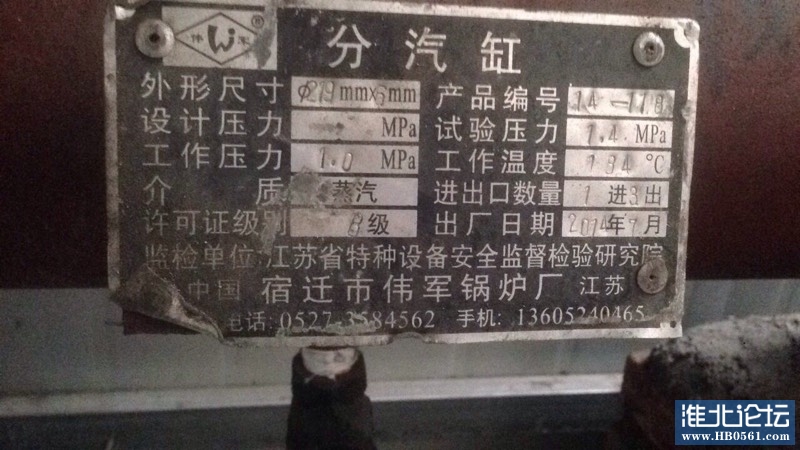 伟军 ®
分汽缸
外形尺寸 φ219mm×6mm 产品编号 14-118
设计压力 MPa 试验压力 1.4 MPa
工作压力 1.0 MPa 工作温度 184 ℃
介质 蒸汽 进出口数量 1进3出
许可证级别 B级 出厂日期 2014年7月
监检单位:江苏省特种设备安全监督检验研究院
中国 宿迁市伟军锅炉厂 江苏
电话: 0527-3584562 手机: 13605240465
淮北论坛
WWW.HB0561.COM